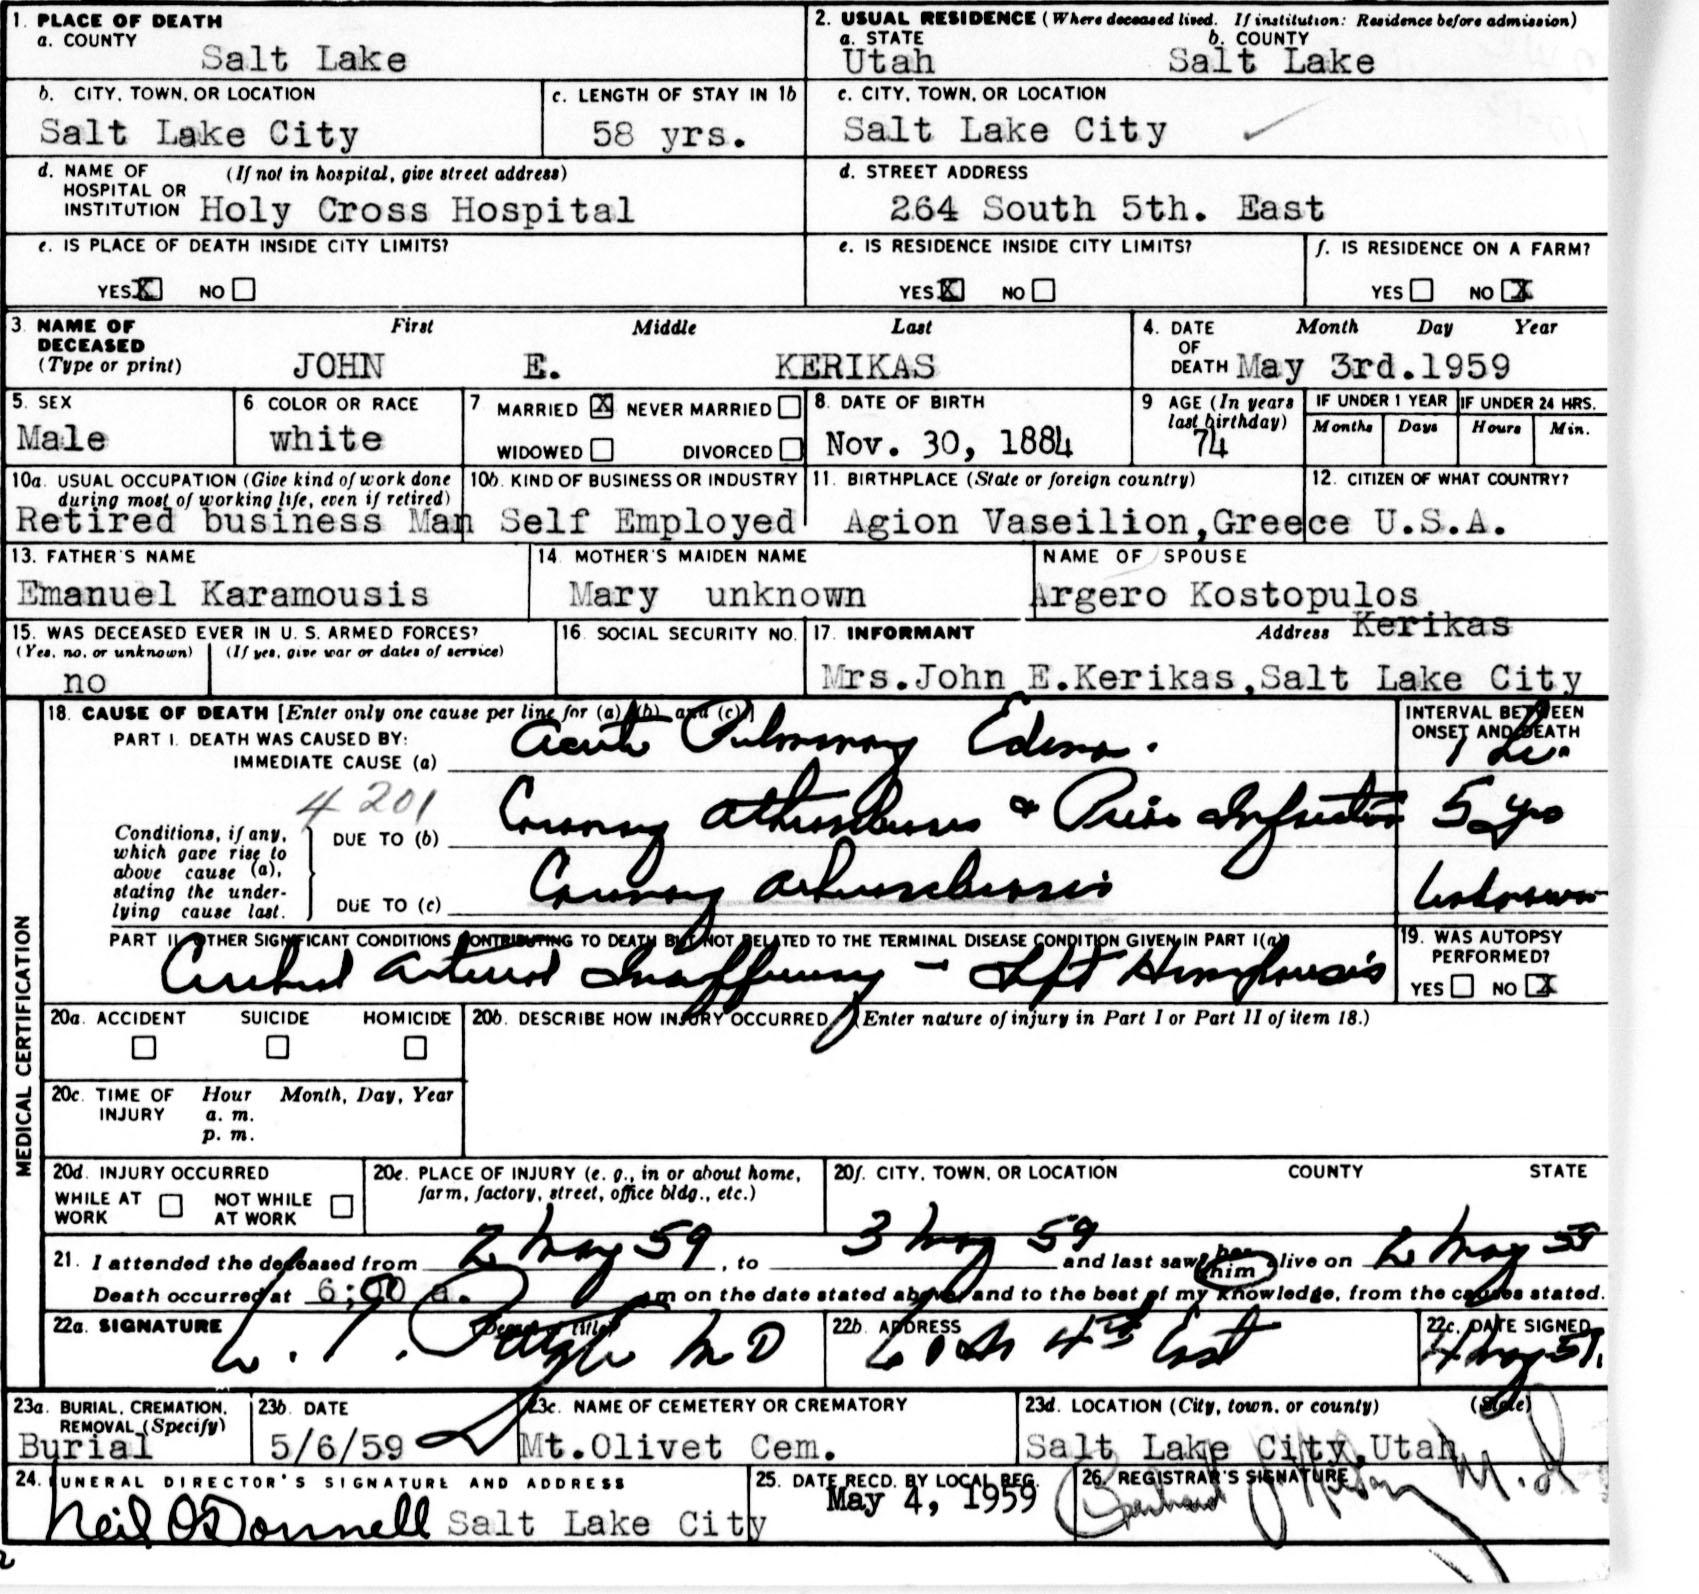 1. PLACE OF DEATH
a. COUNTY
Salt Lake
2. USUAL RESIDENCE (Where deceased lived. If institution: Residence before admission)
a. STATE b. COUNTY
Utah Salt Lake
b. CITY, TOWN, OR LOCATION
Salt Lake City
c. LENGTH OF STAY IN 1b
58 yrs.
c. CITY, TOWN, OR LOCATION
Salt Lake City
d. NAME OF (If not in hospital, give street address)
HOSPITAL OR
INSTITUTION Holy Cross Hospital
d. STREET ADDRESS
264 South 5th. East
e. IS PLACE OF DEATH INSIDE CITY LIMITS?
YES X NO
e. IS RESIDENCE INSIDE CITY LIMITS?
YES X NO
f. IS RESIDENCE ON A FARM?
YES NO X
3. NAME OF DECEASED (Type or print)
First Middle Last
JOHN E. KERIKAS
4. DATE OF DEATH
Month Day Year
May 3rd.1959
5. SEX
Male
6 COLOR OR RACE
white
7 MARRIED X NEVER MARRIED
WIDOWED DIVORCED
8. DATE OF BIRTH
Nov. 30, 1884
9 AGE (In years last birthday)
74
IF UNDER 1 YEAR
Months Days
IF UNDER 24 HRS.
Hours Min.
10a. USUAL OCCUPATION (Give kind of work done
during most of working life, even if retired)
Retired business Man
10b. KIND OF BUSINESS OR INDUSTRY
Self Employed
11. BIRTHPLACE (State or foreign country)
Agion Vaseilion,Greece
12. CITIZEN OF WHAT COUNTRY?
U.S.A.
13. FATHER'S NAME
Emanuel Karamousis
14. MOTHER'S MAIDEN NAME
Mary unknown
NAME OF SPOUSE
Argero Kostopulos
Kerikas
15. WAS DECEASED EVER IN U. S. ARMED FORCES?
(Yes, no, or unknown) (If yes, give war or dates of service)
no
16. SOCIAL SECURITY NO.
17. INFORMANT Address
Mrs.John E.Kerikas,Salt Lake City
MEDICAL CERTIFICATION
18. CAUSE OF DEATH [Enter only one cause per line for (a), (b), and (c)]
INTERVAL BETWEEN
ONSET AND DEATH
PART I. DEATH WAS CAUSED BY:
IMMEDIATE CAUSE (a) Acute Pulmonary Edema.
4201
Conditions, if any,
which gave rise to
above cause (a),
stating the under-
lying cause last.
DUE TO (b) Coronary & Prior Infarction 5 yrs
DUE TO (c) Coronary Unknown
PART II. OTHER SIGNIFICANT CONDITIONS CONTRIBUTING TO DEATH BUT NOT RELATED TO THE TERMINAL DISEASE CONDITION GIVEN IN PART I(a)
Cerebral Arterial Insufficiency - Left
19. WAS AUTOPSY
PERFORMED?
YES NO X
20a. ACCIDENT SUICIDE HOMICIDE
20b. DESCRIBE HOW INJURY OCCURRED. (Enter nature of injury in Part I or Part II of item 18.)
20c. TIME OF INJURY
Hour Month, Day, Year
a. m.
p. m.
20d. INJURY OCCURRED
WHILE AT WORK NOT WHILE AT WORK
20e. PLACE OF INJURY (e. g., in or about home,
farm, factory, street, office bldg., etc.)
20f. CITY, TOWN, OR LOCATION COUNTY STATE
21. I attended the deceased from 2 May 59, to 3 May 59 and last saw her him alive on 2 May 59
Death occurred at 6;00 a. m on the date stated above; and to the best of my knowledge, from the causes stated.
22a. SIGNATURE (Degree or title)
MD
22b. ADDRESS
4th East
22c. DATE SIGNED
4 May 59.
23a. BURIAL, CREMATION,
REMOVAL (Specify)
Burial
23b. DATE
5/6/59
23c. NAME OF CEMETERY OR CREMATORY
Mt.Olivet Cem.
23d. LOCATION (City, town, or county) (State)
Salt Lake City,Utah
24. FUNERAL DIRECTOR'S SIGNATURE AND ADDRESS
Neil O'Donnell Salt Lake City
25. DATE RECD. BY LOCAL REG.
May 4, 1959
26. REGISTRAR'S SIGNATURE
M.D